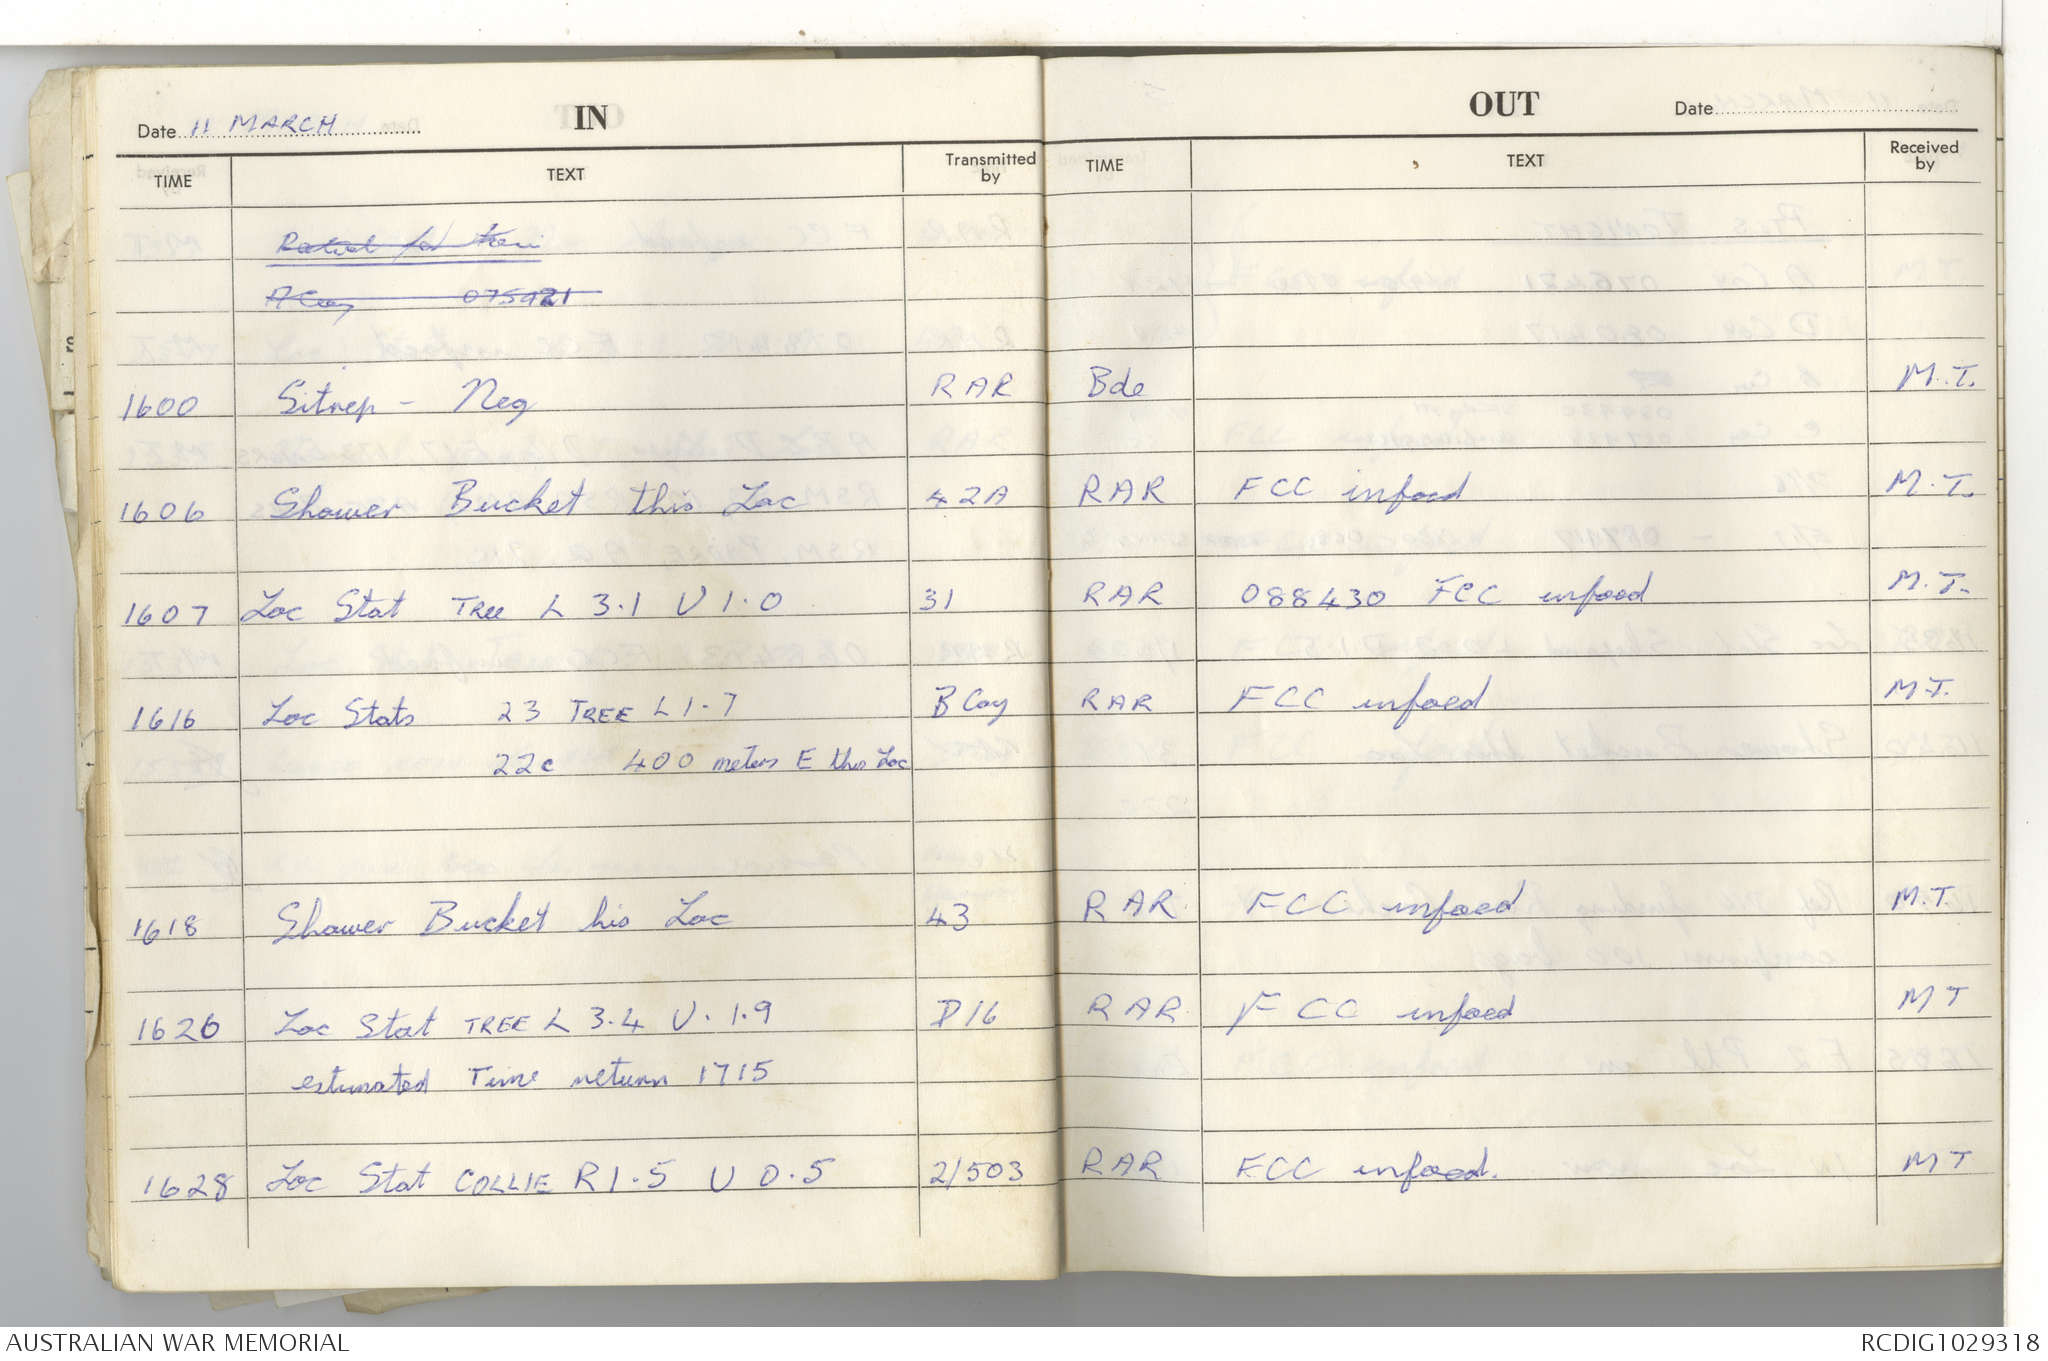 Date 11 MARCH
IN
TIME TEXT Transmitted by
A Coy 075421
1600 Sitrep - Neg RAR
1606 Shower Bucket this Loc 42A
1607 Loc Stat TREE L 3.1 U 1.0 31
1616 Loc Stats 23 TREE L 1.7 B Coy
22c 400 meters E this Loc
1618 Shower Bucket his Loc 43
1626 Loc Stat TREE L 3.4 U. 1.9 D16
estimated Time return 1715
1628 Loc Stat COLLIE R 1.5 U 0.5 2/503
OUT
Date
TIME TEXT Received by
Bde M.T.
RAR FCC infoed M.T.
RAR 088430 FCC infoed M.T.
RAR FCC infoed M.T.
RAR FCC infoed M.T.
RAR FCC infoed MT
RAR FCC infoed. MT
AUSTRALIAN WAR MEMORIAL
RCDIG1029318